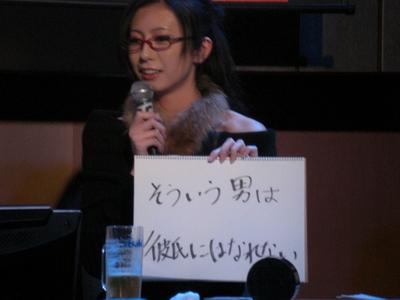 そういう男は
彼氏にはなれない